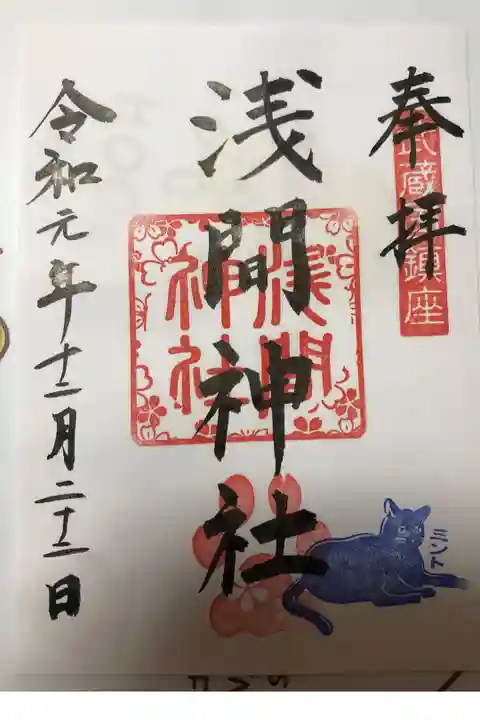 奉拝
武蔵國鎮座
浅間神社
浅間神社
令和元年十二月二十二日
ミント